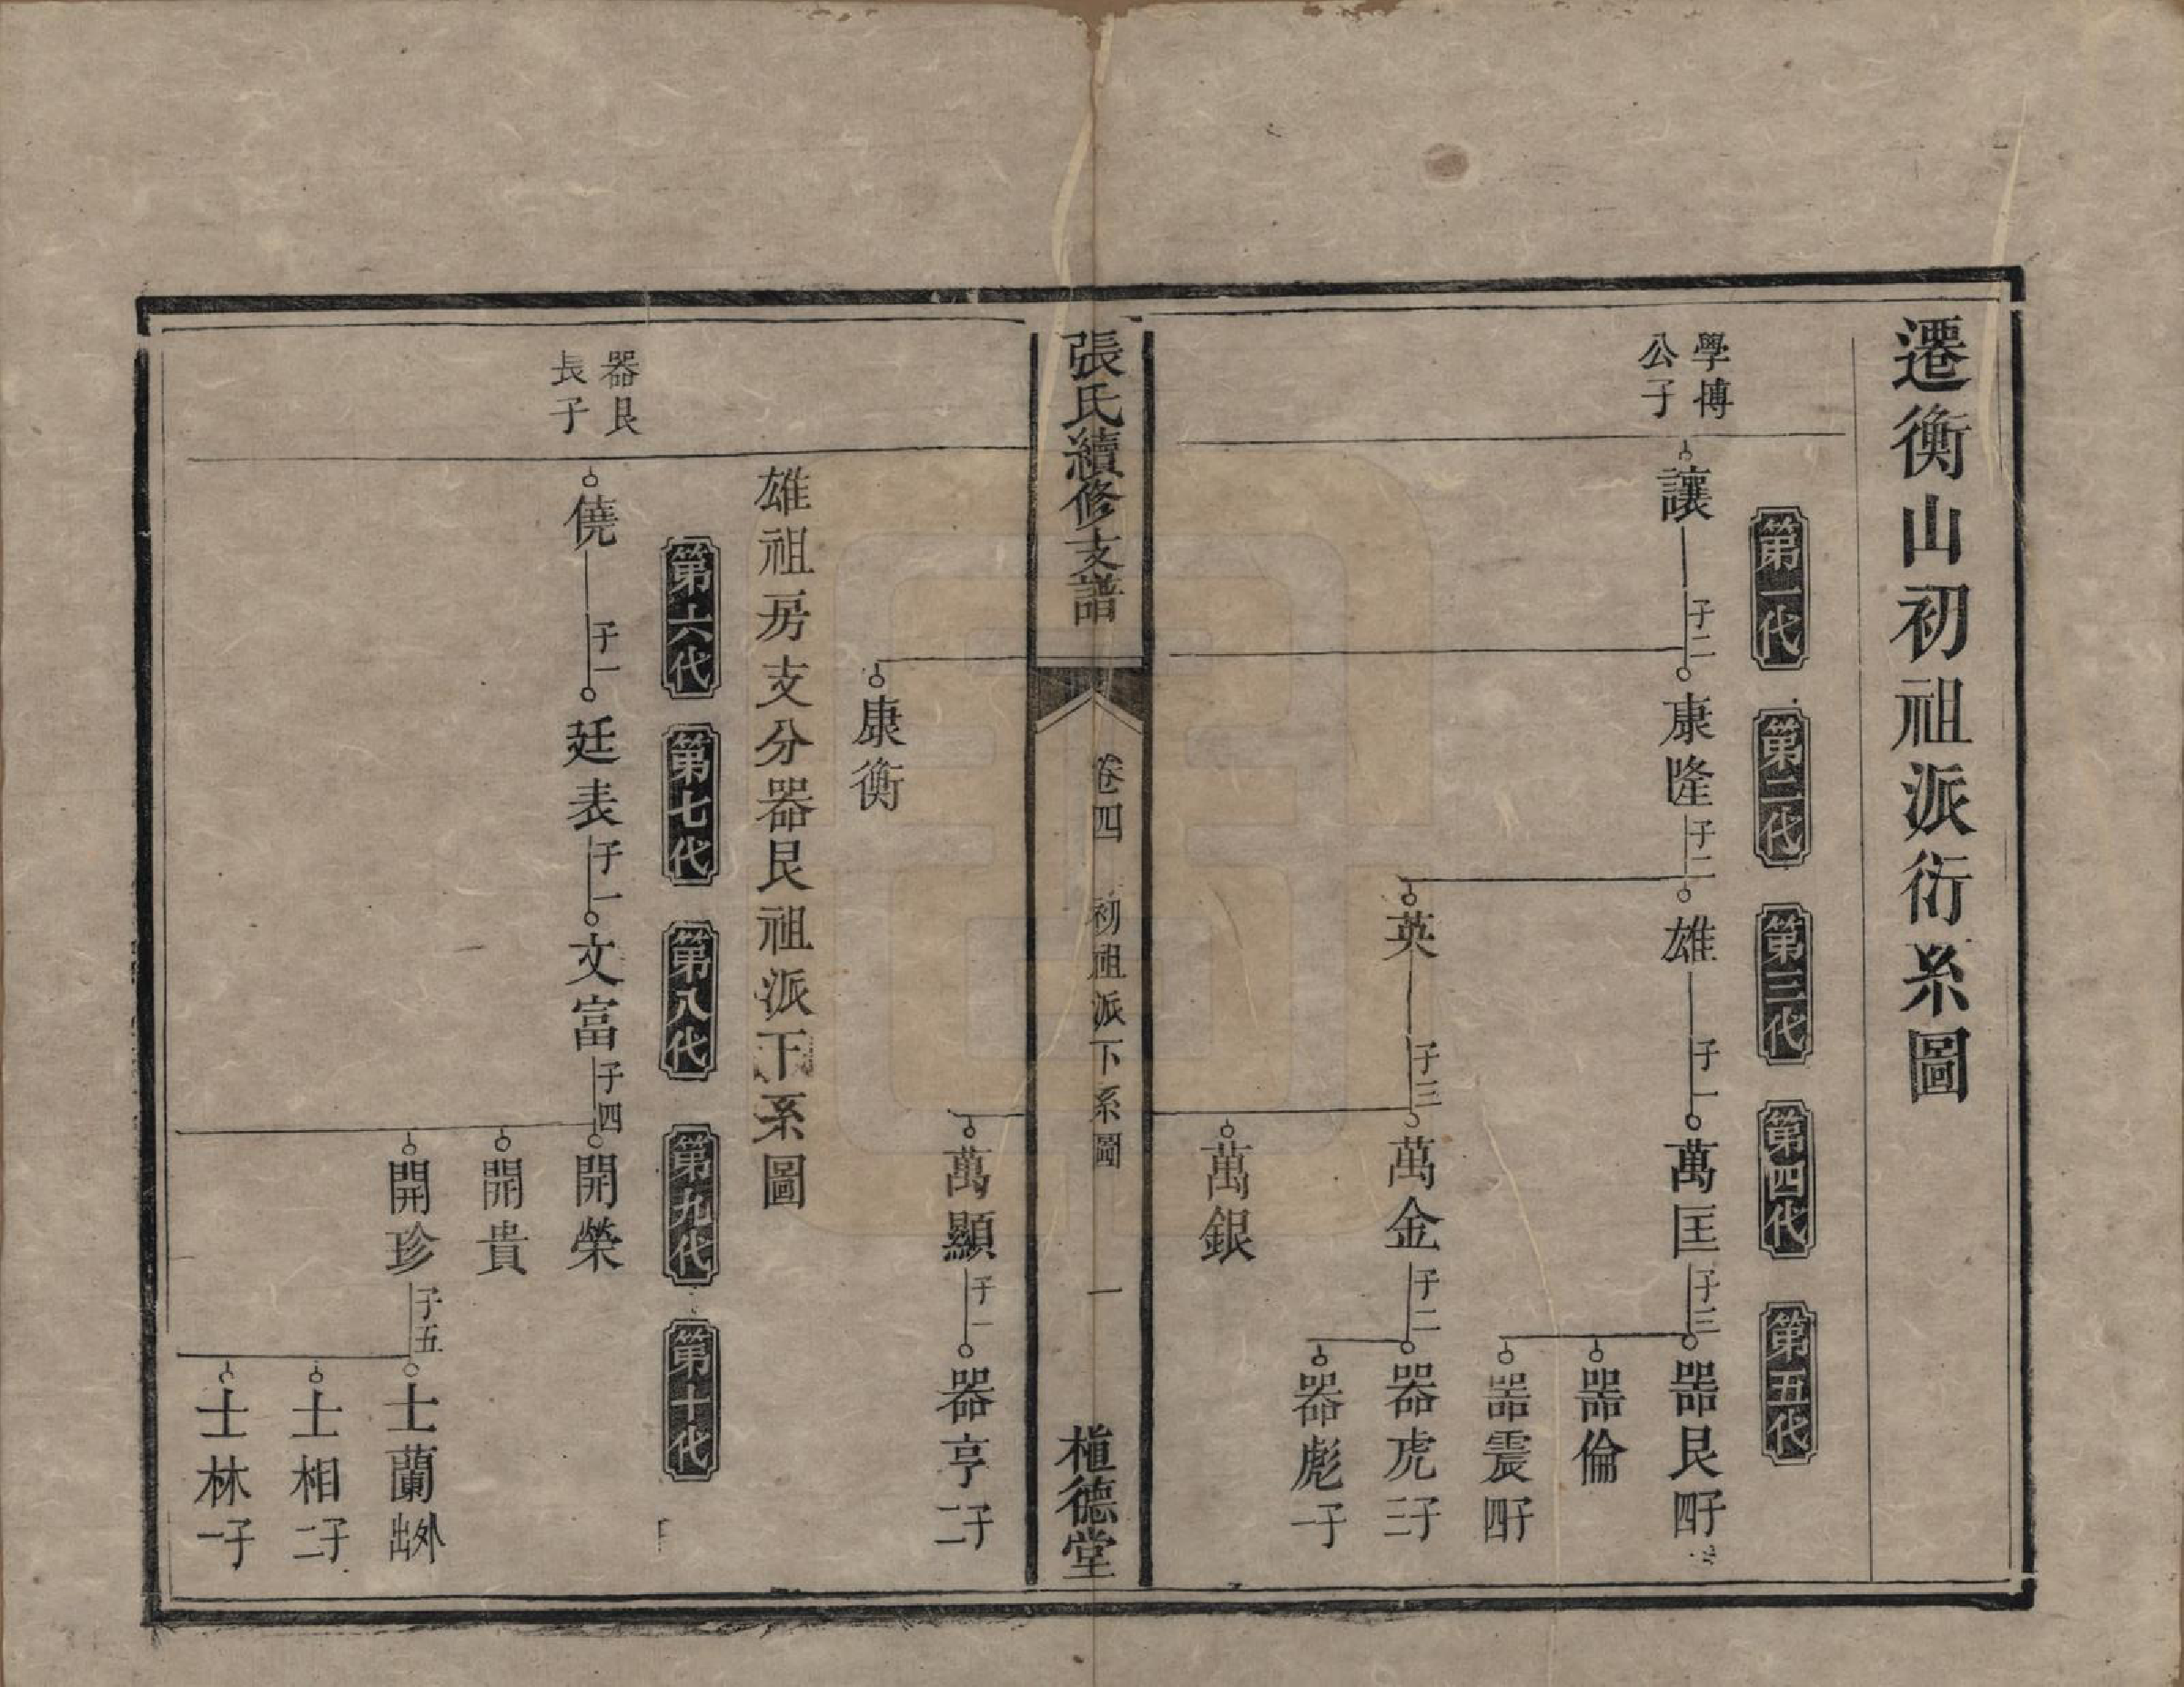 遷衡山初祖派衍系圖
第一代
第二代
第三代
第四代
第五代
學博
公子
讓
子二
康隆
子二
雄
子一
萬匡
子三
器艮
子四
器倫
器震
子四
英
子三
萬金
子二
器虎
子三
器彪
子一
萬銀
張氏續修支譜
卷四
初祖派下系圖
一
植德堂
萬顯
子一
器亨
子二
康衡
雄祖房支分器艮祖派下系圖
第六代
第七代
第八代
第九代
第十代
器艮
長子
僥
子一
廷表
子一
文富
子四
開榮
開貴
開珍
子五
士蘭
外出
士相
子二
士林
子一